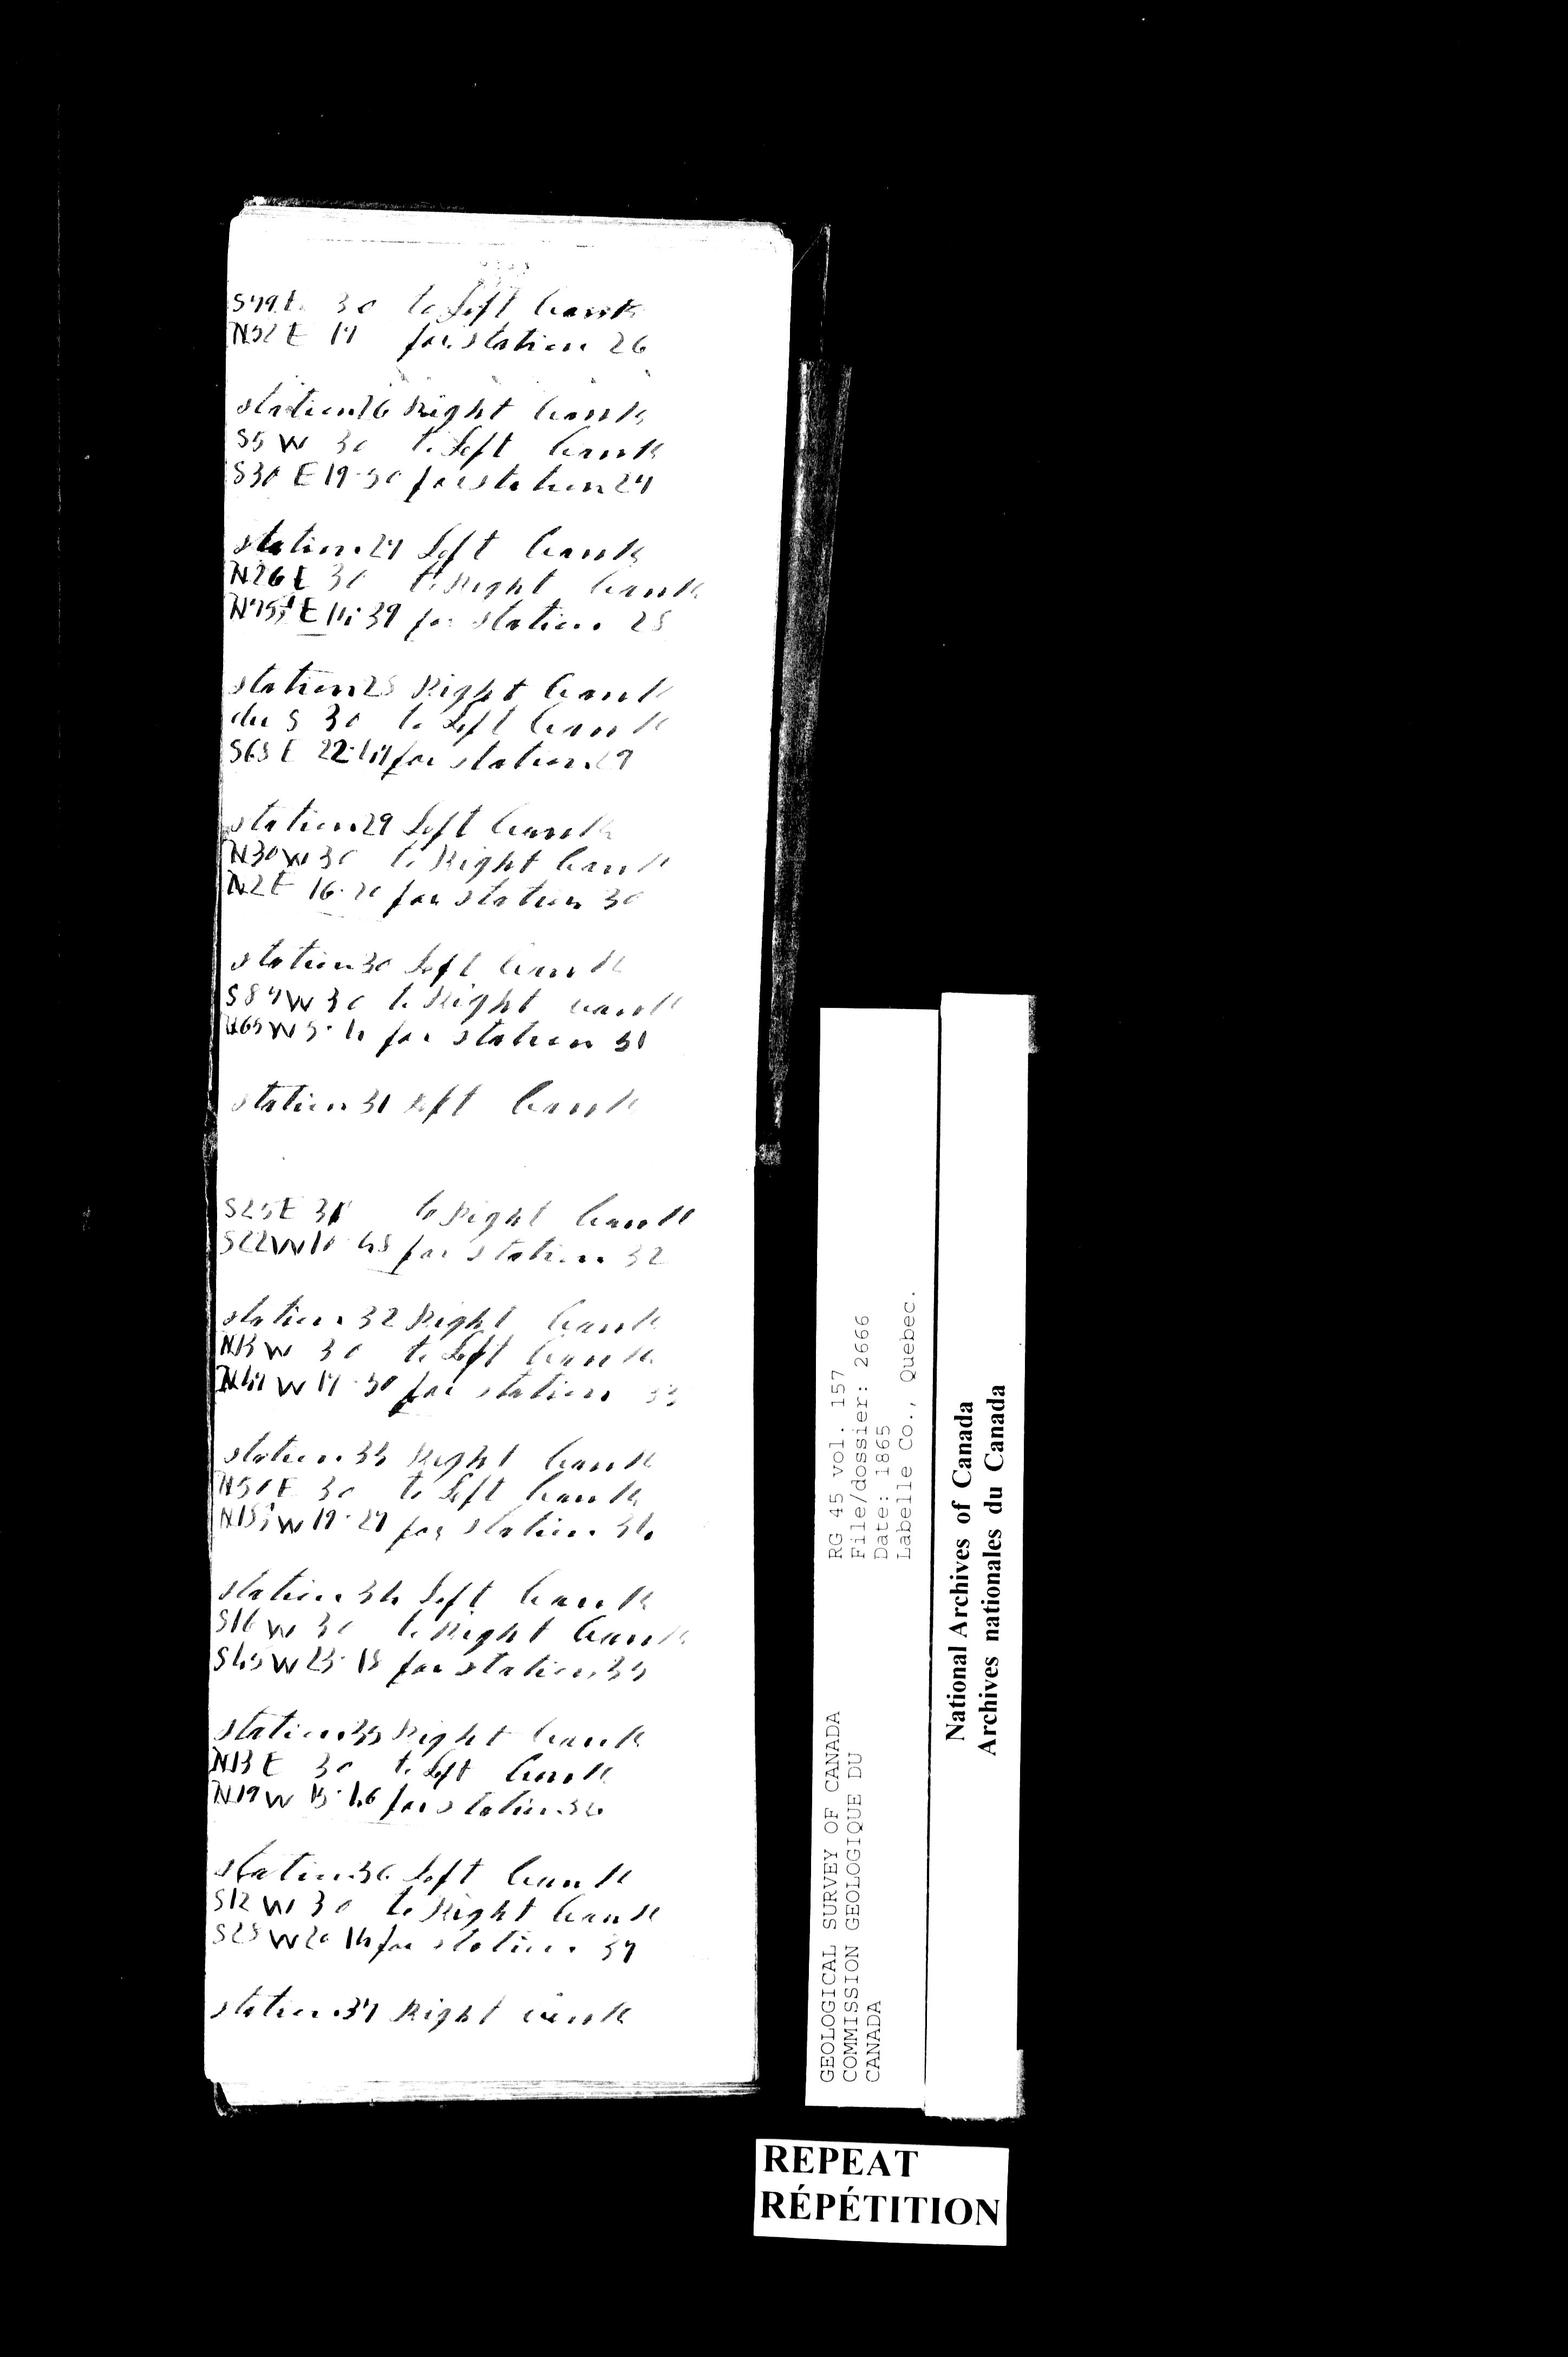 S79E 30 to Left bank
N52E 17 for station 26
station 26 Right bank
S5W 30 to Left bank
S30E 19·30 for station 27
station 27 Left bank
N26E 30 to Right bank
N75½E 14·39 for station 28
station 28 Right bank
du S 30 to Left bank
S68E 22·47 for station 29
station 29 Left bank
N30W 30 to Right bank
N2E 16·20 for station 30
station 30 Left bank
S87W 30 to Right bank
N65W 5·4 for station 31
station 31 Left bank
S25E 30 to Right bank
S22W 10·48 for station 32
station 32 Right bank
N13W 30 to Left bank
N47W 17·30 for station 33
station 33 Right bank
N50E 30 to Left bank
N15½W 19·27 for station 34
station 34 Left bank
S16W 30 to Right bank
S45W 23·18 for station 35
station 35 Right bank
N13E 30 to Left bank
N19W 15·46 for station 36
station 36 Left bank
S12W 30 to Right bank
S28W 20 14 for station 37
station 37 Right bank
GEOLOGICAL SURVEY OF CANADA
COMMISSION GEOLOGIQUE DU
CANADA
RG 45 vol. 157
File/dossier: 2666
Date: 1865
Labelle Co., Quebec.
National Archives of Canada
Archives nationales du Canada
REPEAT
RÉPÉTITION